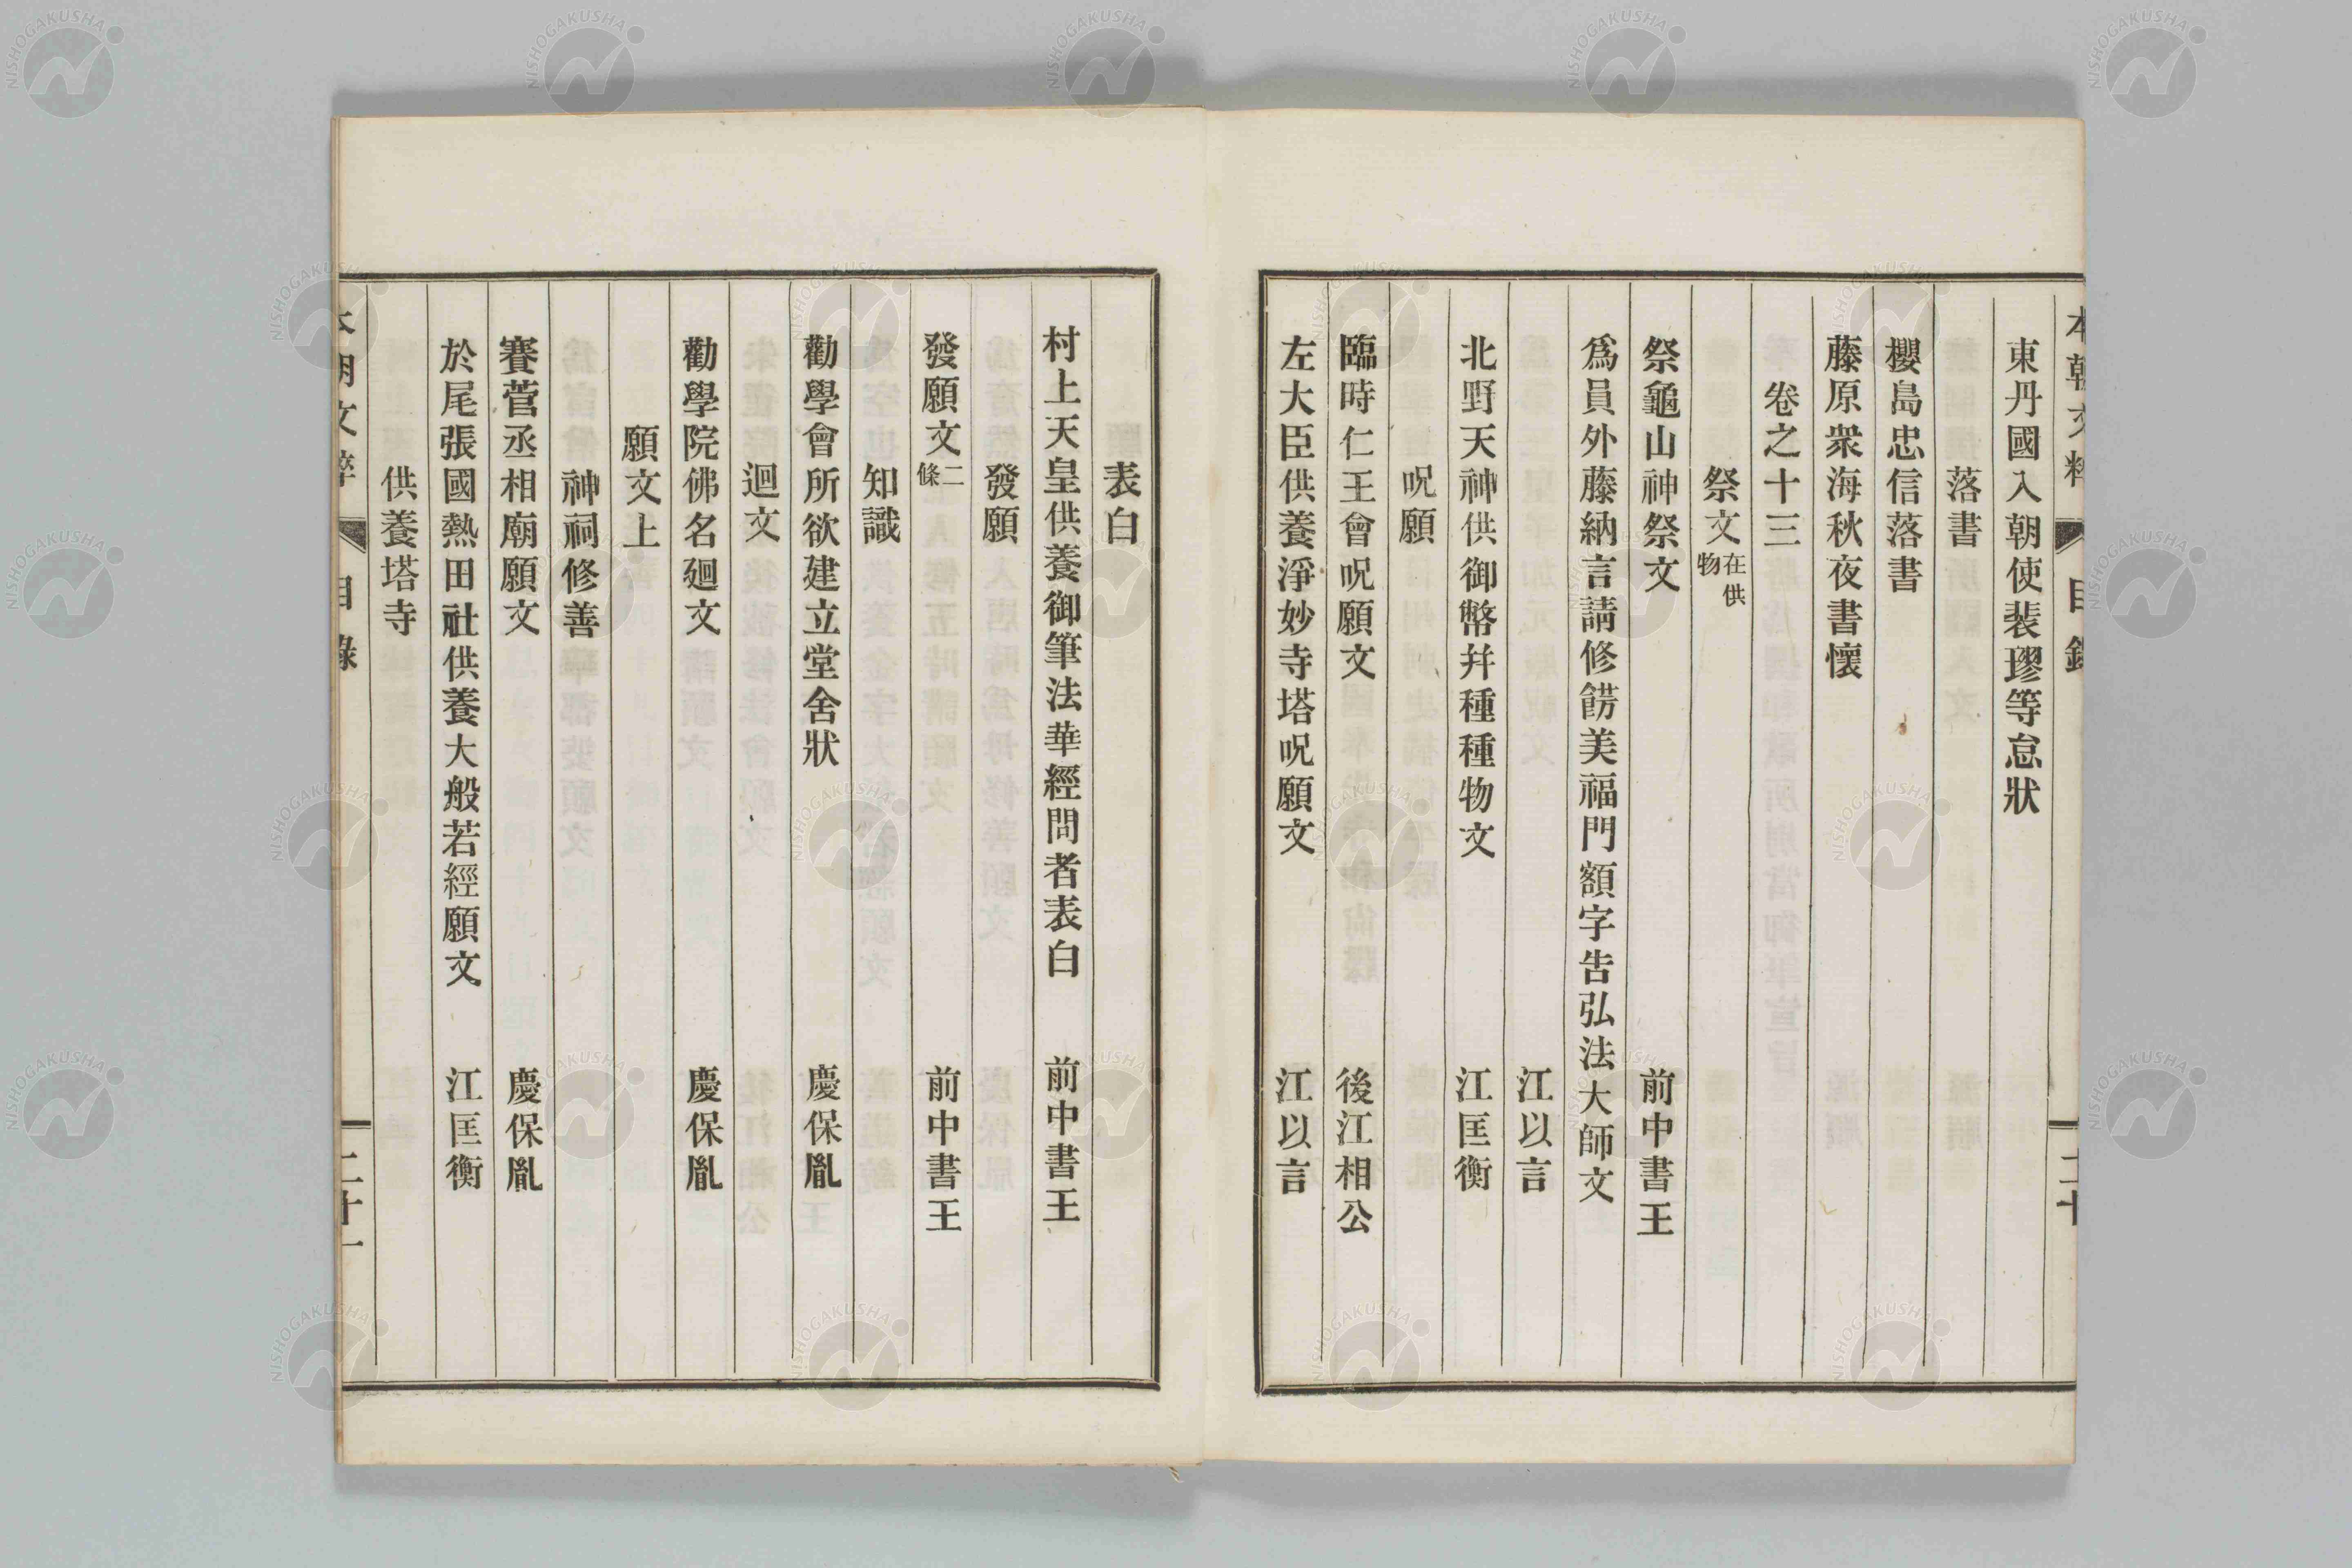 本朝文粹 目錄 二十
東丹國入朝使裴璆等怠狀
落書
櫻島忠信落書
藤原衆海秋夜書懷
卷之十三
祭文在供物
祭龜山神祭文 前中書王
爲員外藤納言請修餝美福門額字告弘法大師文
江以言
北野天神供御幣幷種種物文 江匡衡
呪願
臨時仁王會呪願文 後江相公
左大臣供養淨妙寺塔呪願文 江以言
表白
村上天皇供養御筆法華經問者表白 前中書王
發願
發願文二條 前中書王
知識
勸學會所欲建立堂舍狀 慶保胤
迴文
勸學院佛名廻文 慶保胤
願文上
神祠修善
賽菅丞相廟願文 慶保胤
於尾張國熱田社供養大般若經願文 江匡衡
供養塔寺
本朝文粹 目錄 二十一
NISHOGAKUSHA